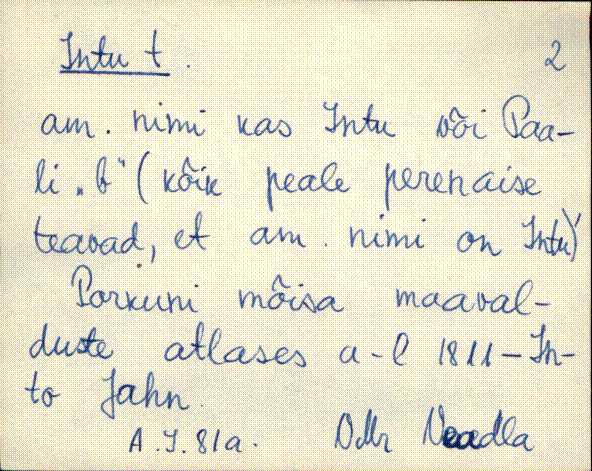 Intu t. 2
am. nimi kas Intu või Paa-
li „b" (kõik peale perenaise
teavad, et am. nimi on Intu)
Porkuni mõisa maaval-
duste atlases a-l 1811 - In-
to Jahn.
A.J. 81a. Neadla